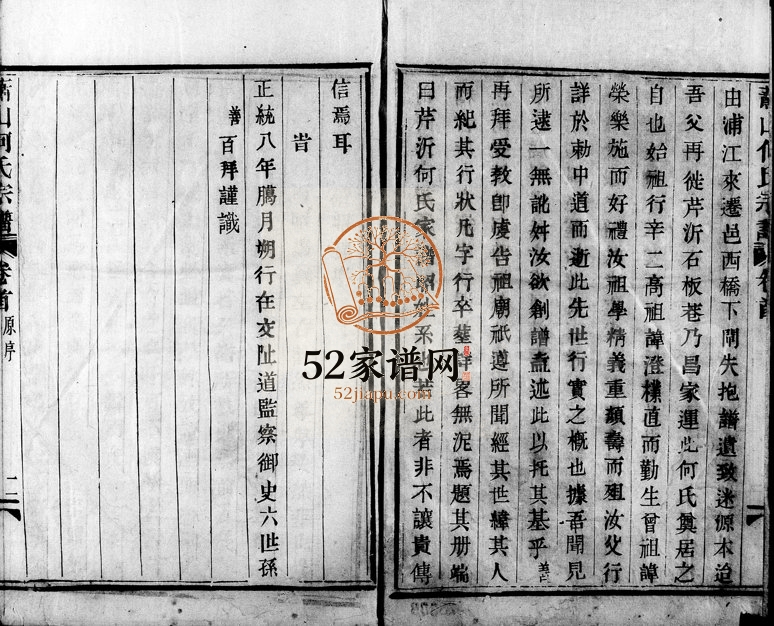 蕭山何氏宗譜 卷首
由浦江來遷邑西橋下閘失抱譜遺致迷源本迨
吾父再徙芹沂石板巷乃昌家運此何氏奠居之
自也始祖行辛二高祖諱澄樸直而勤生曾祖諱
榮樂施而好禮汝祖學精義重頹壽而殂汝父行
詳於勅中道而逝此先世行實之概也據吾聞見
所逮一無訛舛汝欲創譜盍述此以托其基乎善
再拜受教卽虔告祖廟祇遵所聞經其世緯其人
而紀其行狀凡字行卒塟詳畧無泥焉題其册端
曰芹沂何氏家譜昭 系也若此者非不讓貴傳
信焉耳
旹
正統八年臈月朔行在交阯道監察御史六世孫
善百拜謹識
蕭山何氏宗譜 卷首 原序 二
52家谱网
52jiapu.com